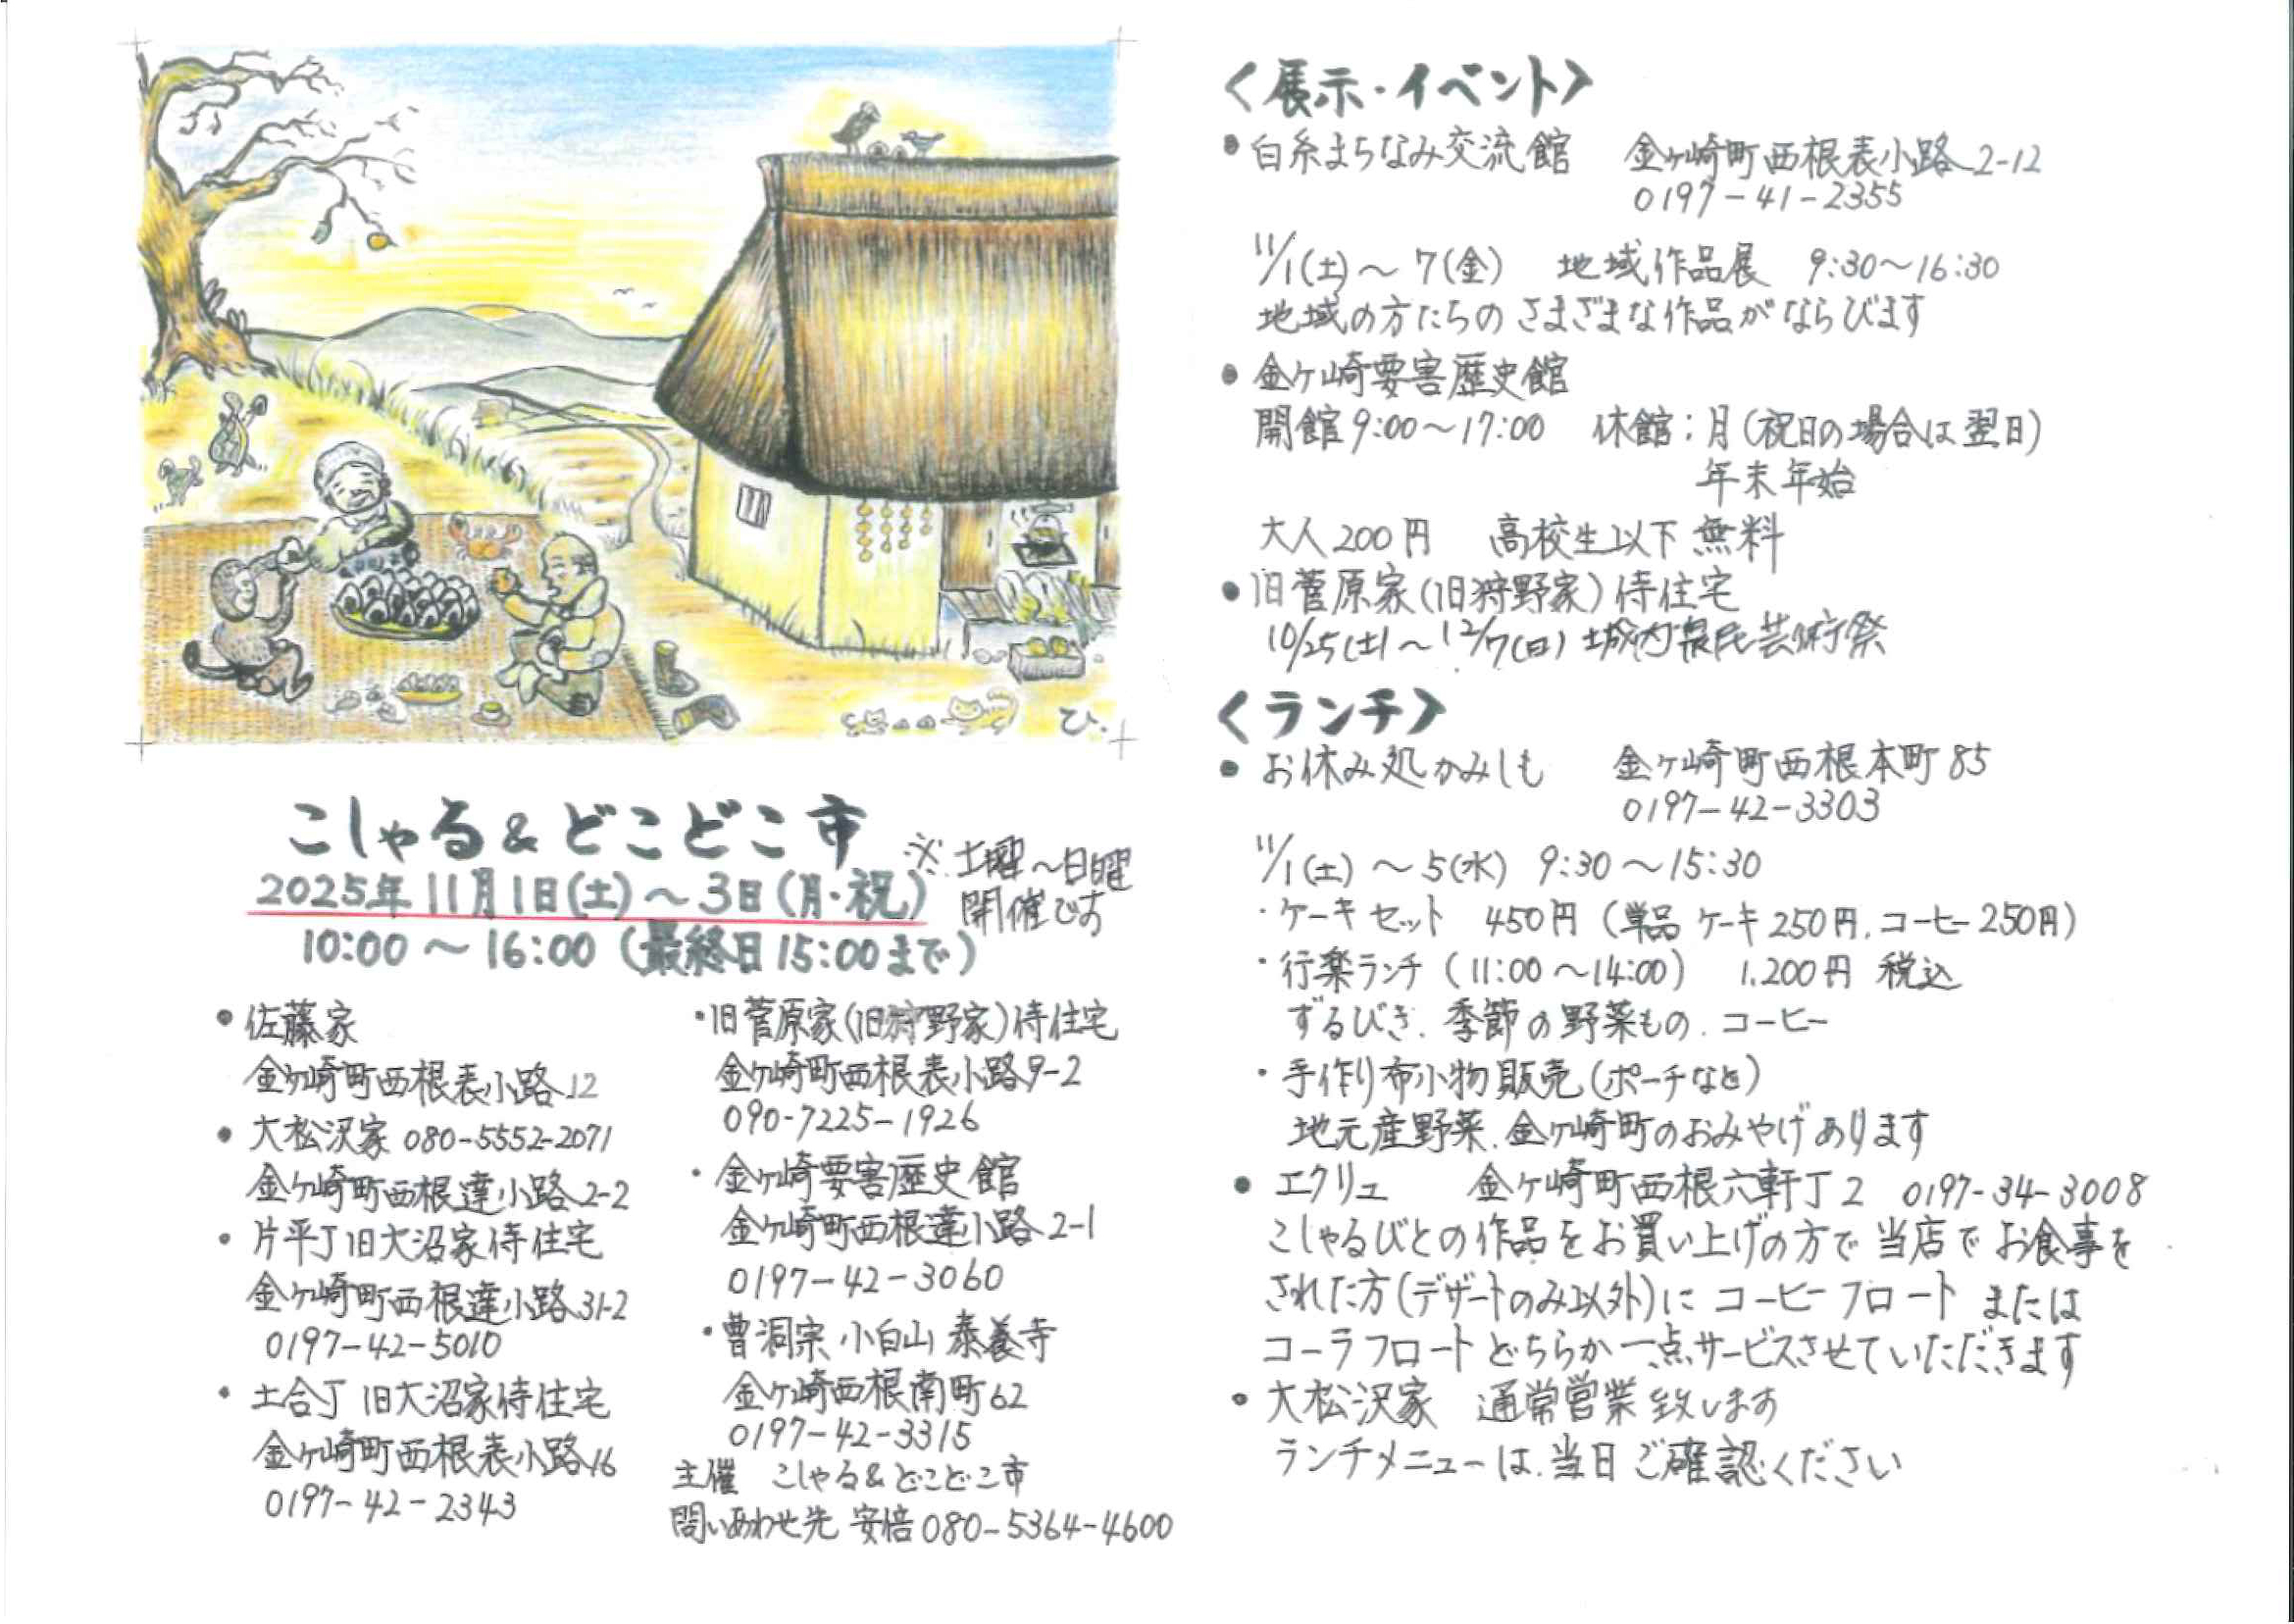 ひ.
こしゃる&どこどこ市
2025年11月1日(土)～3日(月・祝)
※土曜～日曜
開催です
10:00～16:00(最終日15:00まで)
・佐藤家
金ヶ崎町西根表小路12
・大松沢家 080-5552-2071
金ヶ崎町西根達小路2-2
・片平丁旧大沼家侍住宅
金ヶ崎町西根達小路31-2
0197-42-5010
・土合丁旧大沼家侍住宅
金ヶ崎町西根表小路16
0197-42-2343
・旧菅原家(旧狩野家)侍住宅
金ヶ崎町西根表小路9-2
090-7225-1926
・金ヶ崎要害歴史館
金ヶ崎町西根達小路2-1
0197-42-3060
・曹洞宗 小白山 泰養寺
金ヶ崎西根南町62
0197-42-3315
主催 こしゃる&どこどこ市
問いあわせ先 安倍080-5364-4600
〈展示・イベント〉
・白糸まちなみ交流館 金ヶ崎町西根表小路2-12
0197-41-2355
11/1(土)～7(金) 地域作品展 9:30～16:30
地域の方たちのさまざまな作品がならびます
・金ヶ崎要害歴史館
開館9:00～17:00 休館:月(祝日の場合は翌日)
年末年始
大人200円 高校生以下無料
・旧菅原家(旧狩野家)侍住宅
10/25(土)～12/7(日) 城内農民芸術祭
〈ランチ〉
・お休み処かみしも 金ヶ崎町西根本町85
0197-42-3303
11/1(土)～5(水) 9:30～15:30
・ケーキセット 450円(単品 ケーキ250円.コーヒー250円)
・行楽ランチ(11:00～14:00) 1.200円 税込
ずるびき.季節の野菜もの.コーヒー
・手作り布小物販売(ポーチなど)
地元産野菜.金ヶ崎町のおみやげあります
・エクリュ 金ヶ崎町西根六軒丁2 0197-34-3008
こしゃるびとの作品をお買い上げの方で当店でお食事を
された方(デザートのみ以外)にコーヒーフロートまたは
コーラフロートどちらか一点サービスさせていただきます
・大松沢家 通常営業致します
ランチメニューは.当日ご確認ください